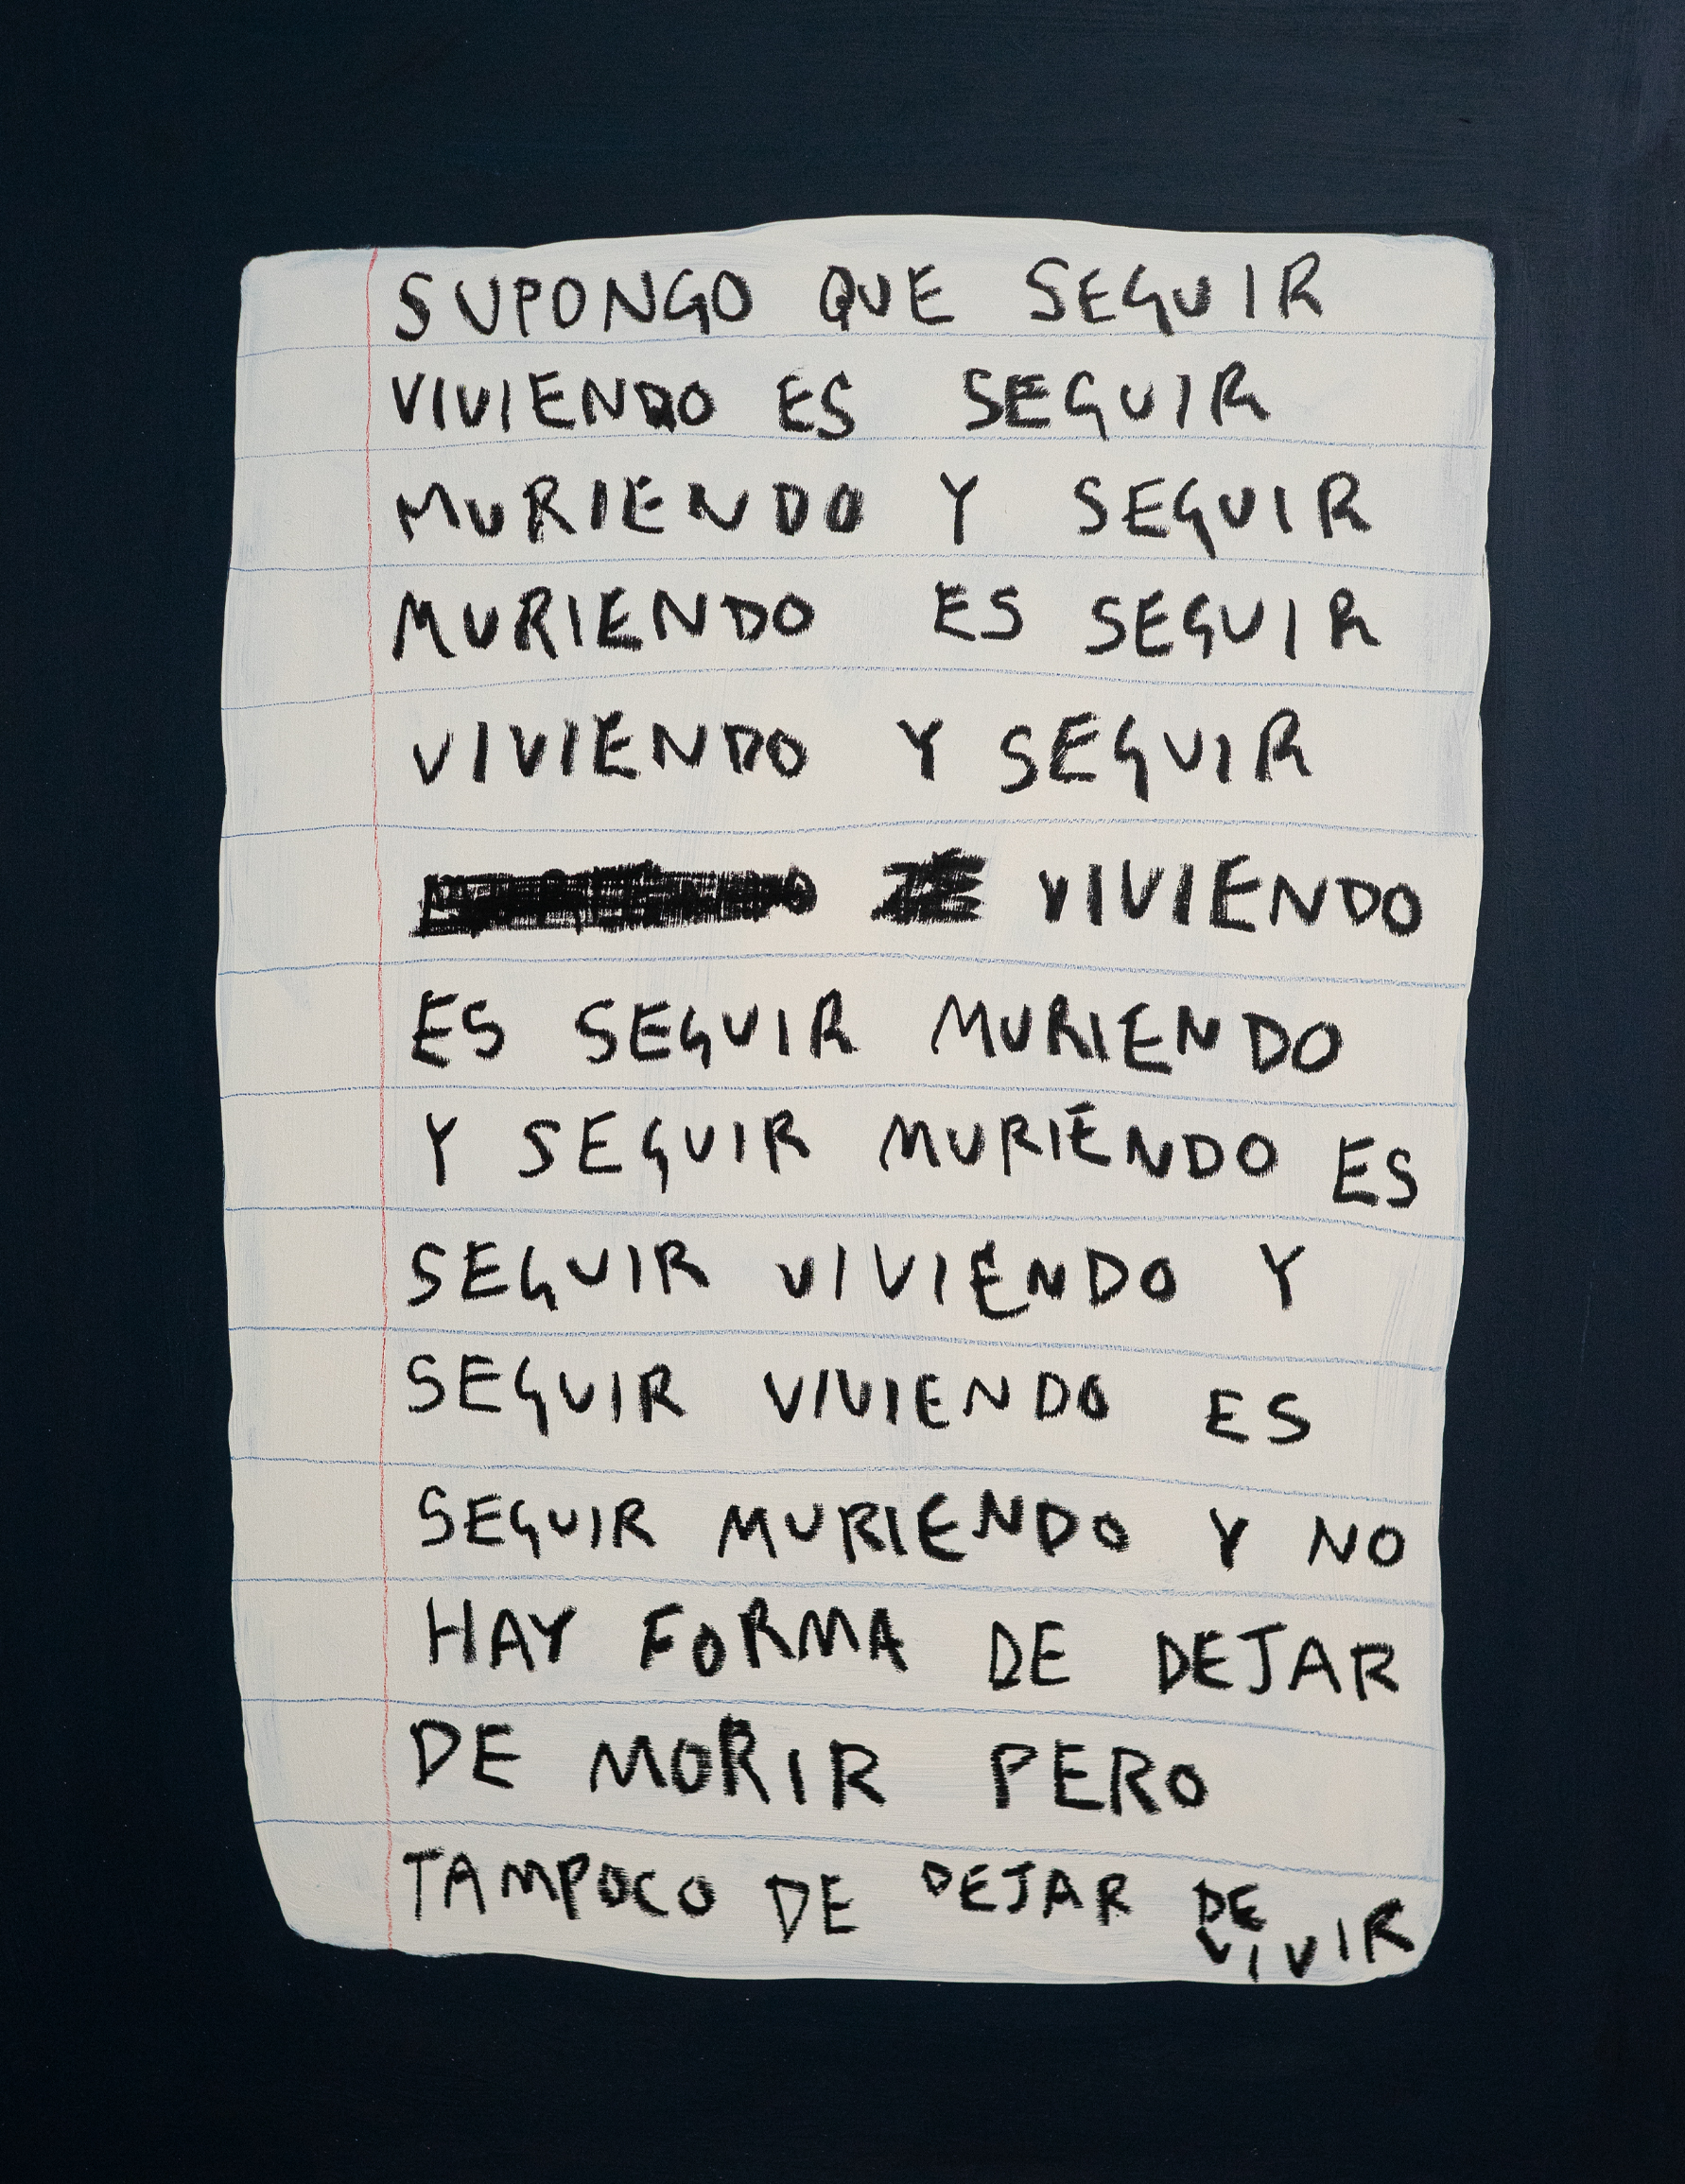 SUPONGO QUE SEGUIR
VIVIENDO ES SEGUIR
MURIENDO Y SEGUIR
MURIENDO ES SEGUIR
VIVIENDO Y SEGUIR
VIVIENDO
ES SEGUIR MURIENDO
Y SEGUIR MURIENDO ES
SEGUIR VIVIENDO Y
SEGUIR VIVIENDO ES
SEGUIR MURIENDO Y NO
HAY FORMA DE DEJAR
DE MORIR PERO
TAMPOCO DE DEJAR DE
VIVIR